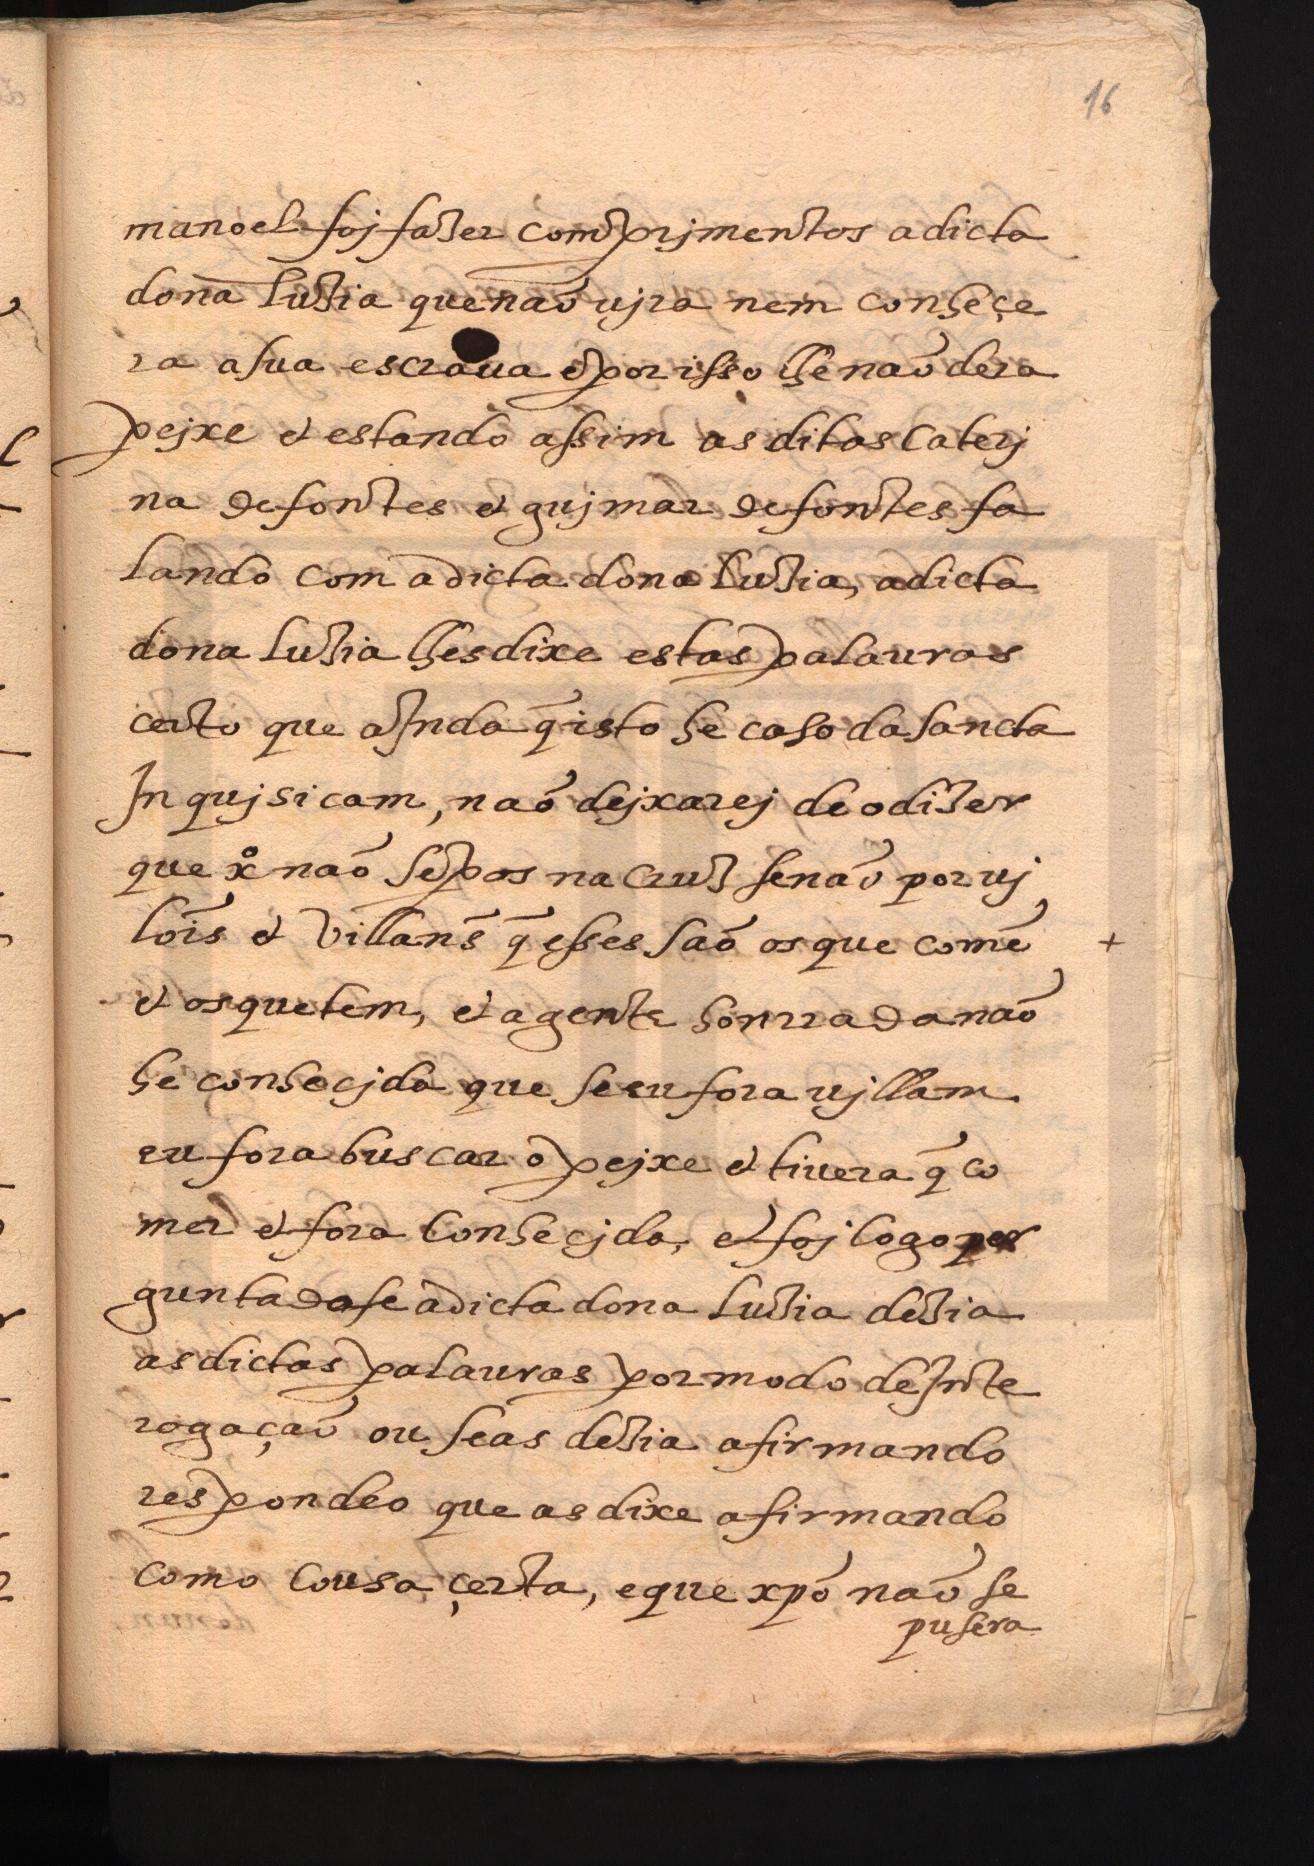 16
manoel foj fazer comprjmentos a dicta
dona luzia que naõ ujra nem conheçe
ra a sua escraua e por isso lhe naõ dera
pejxe et estando assim as ditas Caterj
na de fontes et gujmar de fontes fa
lando com a dicta dona Luzia, a dicta
dona luzia lhes dixe estas palauras
certo que aInda q̃ isto he caso da sancta
Inqujsicam, naõ dejxarej de o dizer
que xº naõ se pos na cruz senaõ por uj
loĩs et villans̃ q̃ esses saõ os que comẽ
et os que tem, et a gente honrrada naõ
he conhecjda que se eu fora ujllam
eu fora buscar o pejxe et tiuera q̃ co
mer et fora Conhecjda, et foj logo per
guntada se a dicta dona luzia dezia
as dictas palauras por modo de Inte
rogaçaõ ou se as dezia afirmando
respondeo que as dixe afirmando
como cousa çerta, e que xp̃o naõ se
pusera
+